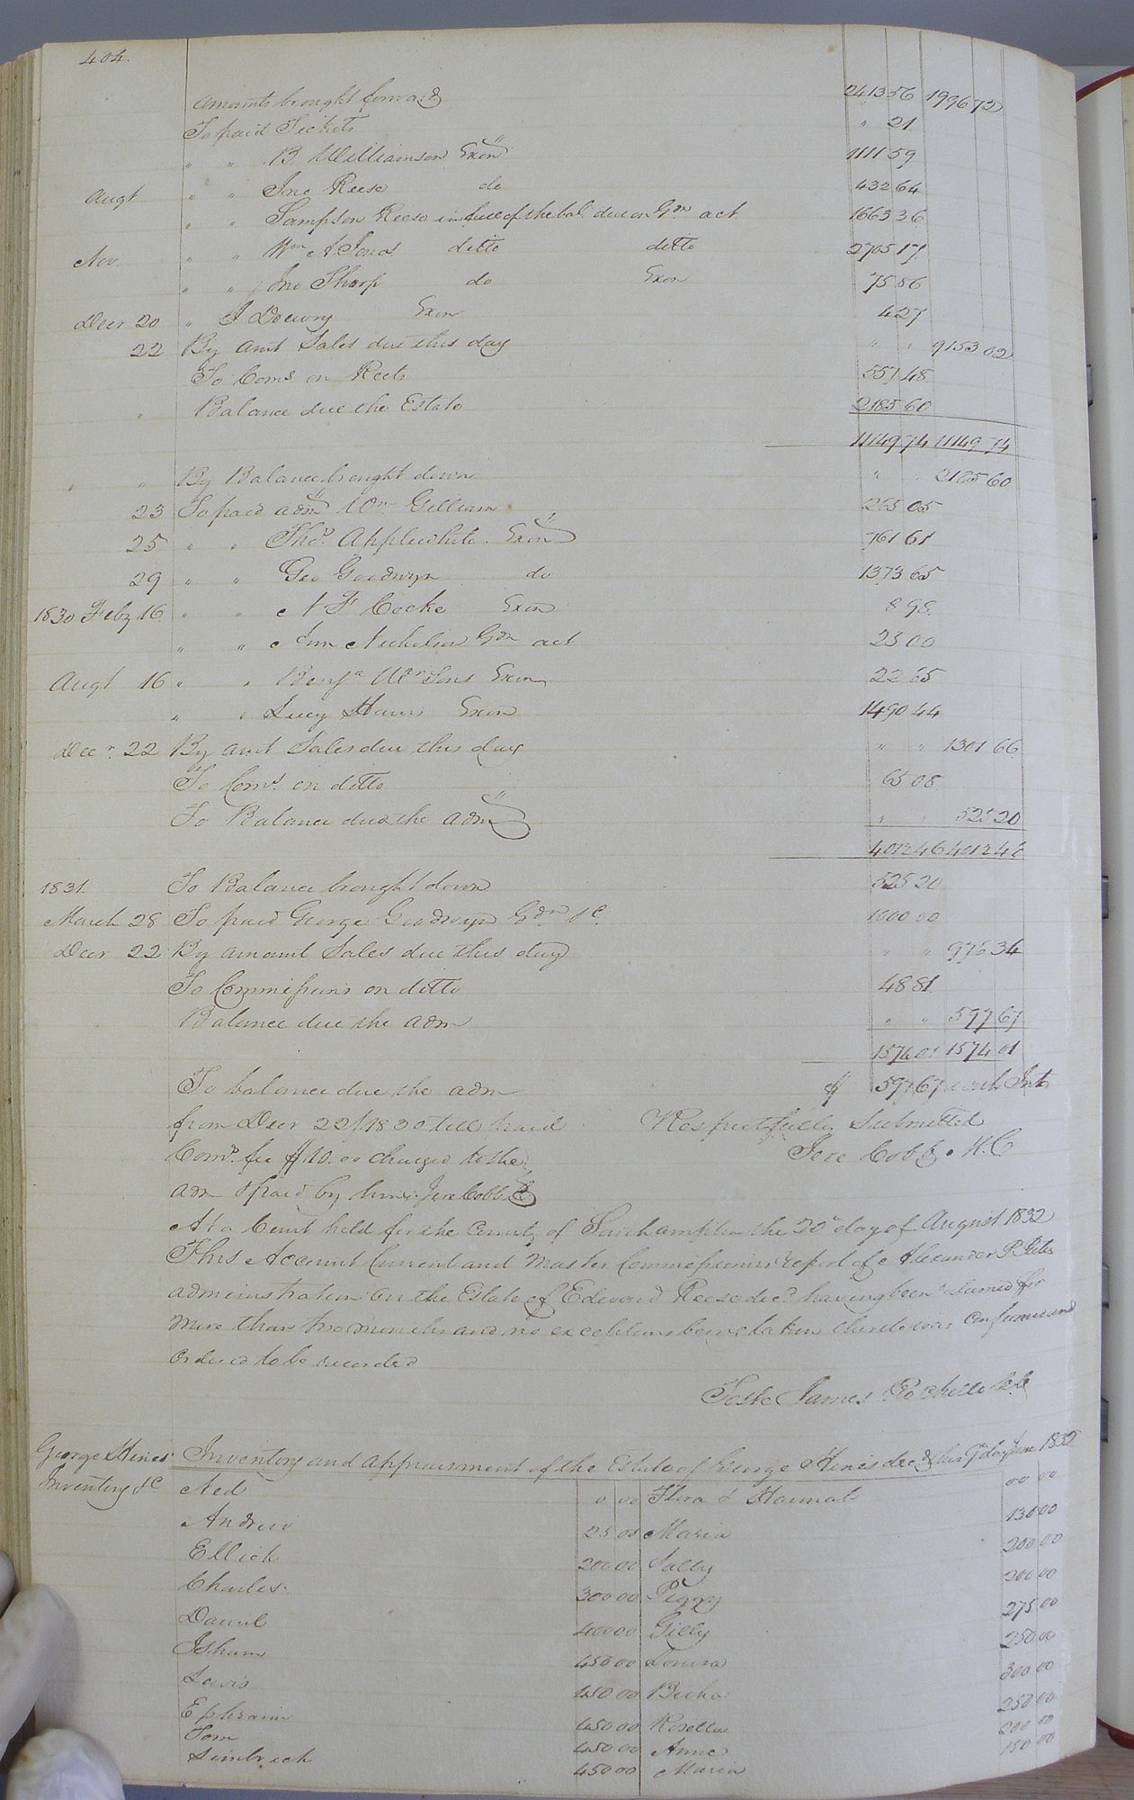 404.
Amounts brought forward 2413 56 1996 72
To paid Tickets " 21
" " B Williamson Exon
1111 59
Augt " " Jno Reese do 432 64
" " Sampson Reese in full of the bal due on Gdn act 1663 36
Nov " " Wm A Jones ditto ditto 2705 17
" " Jno Tharp do Exon 75 06
Decr 20 " J Drewry Exon 4 27
22 By amt Sales due this day " " 9153 02
To Coms on Rects 557 48
" Balance due the Estate 2185 60
11149 74 11149 74
" " By Balance brought down " " 2185 60
23 To paid adm Wm Gilliam 265 05
25 " " Thos Applewhite Exon 761 61
29 " " Geo Goodwyn do 1373 65
1830 Feby 16 " " N F Cocke Exon 8 98
" " Ann Nicholson Gdn act 25 00
Augt 16 " " Exon 22 65
" " Lucy Exon 1490 44
Decr 22 By amt Sales due this day " " 1301 66
To Coms on ditto 65 08
To Balance due the adm " " 525 20
4012 46 4012 46
1831. To Balance brought down 525 20
March 28 To paid George Goodwyn Gdn &c. 1000 00
Decr 22 By amount Sales due this day " " 976 34
To Commissions on ditto 48 81
Balance due the adm " " 597 67
1574 01 1574 01
To balance due the adm $ 597 67 with Int
from Decr 22d 1830 till paid Respectfully Submitted
Coms fee $10.00 charged to the Jere Cobb. M.C
adm & paid by him. Jere Cobb
At a Court held for the County of Southampton the 20th day of August 1832
This Account Current and Master Commissioners report of Alexander P. Peete
administration on the Estate of Edward Reese decd. having been returned for
more than two months and no exceptions being taken thereto was confirmed and
ordered to be recorded
Teste James Rochelle
George Hines Inventory and appraisement of the Estate of George Hines decd this 9th day June 1832
Inventory &c Ned 0 00 Flora & Hannah 00 00
Andrew 25 00 Maria 130 00
Ellick 200 00 Sally 200 00
Charles 300 00 Peggy 200 00
Daniel 400 00 Gilly 275 00
Isham 450 00 Louisa 250 00
Lewis 450 00 300 00
Ephraim 450 00 Rosetta 250 00
Tom 450 00 Anne 200 00
450 00 Maria 150 00